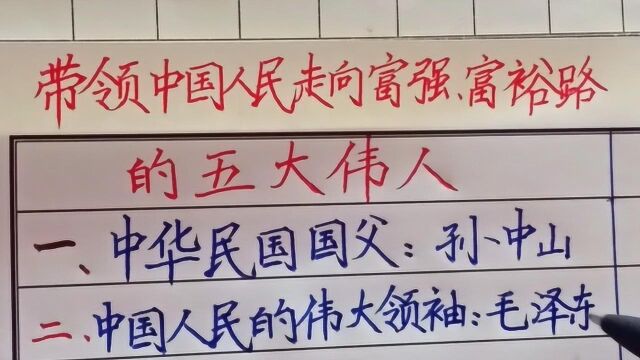 带领中国人民走向富强、富裕路
的五大伟人
一、中华民国国父：孙中山
二、中国人民的伟大领袖：毛泽东